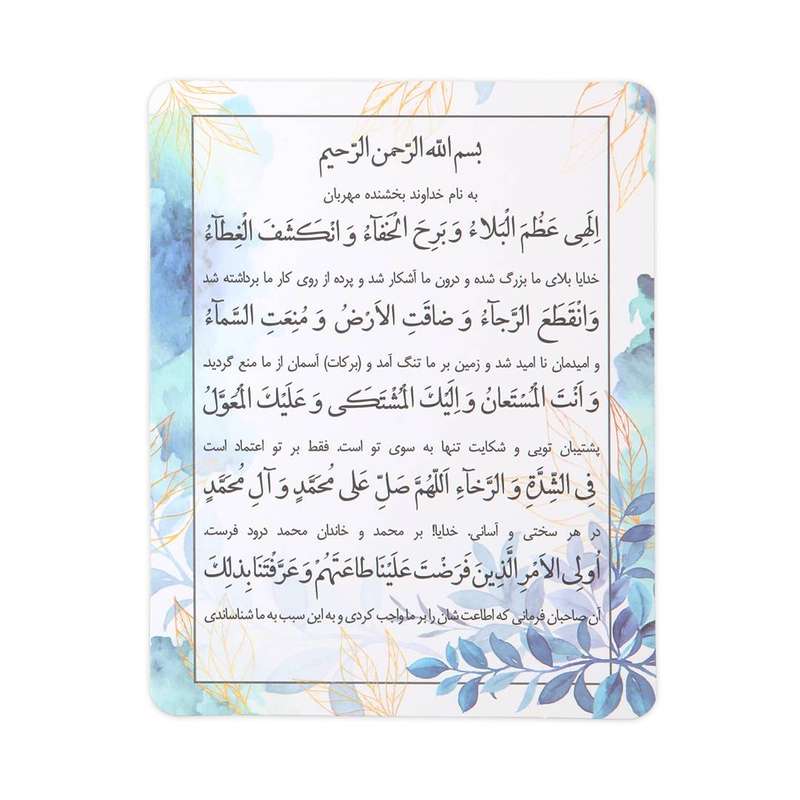 بسم الله الرّحمن الرّحیم
به نام خداوند بخشنده مهربان
اِلٰهِی عَظُمَ الْبَلاءُ وَ بَرِحَ الْخَفٰآءُ وَ انْکَشَفَ الْغِطٰآءُ
خدایا بلای ما بزرگ شده و درون ما آشکار شد و پرده از روی کار ما برداشته شد
وَ انْقَطَعَ الرَّجآءُ وَ ضاقَتِ الاَرْضُ وَ مُنِعَتِ السَّمآءُ
و امیدمان نا امید شد و زمین بر ما تنگ آمد و (برکات) آسمان از ما منع گردید.
وَ اَنْتَ الْمُسْتَعانُ وَ اِلَیْکَ الْمُشْتَکی وَ عَلَیْکَ الْمُعَوَّلُ
پشتیبان تویی و شکایت تنها به سوی تو است. فقط بر تو اعتماد است
فِی الشِّدَّةِ وَ الرَّخآءِ اَللّهُمَّ صَلِّ عَلی مُحَمَّدٍ وَ آلِ مُحَمَّدٍ
در هر سختی و آسانی. خدایا! بر محمد و خاندان محمد درود فرست.
اُولِی الاَمْرِ الَّذِینَ فَرَضْتَ عَلَیْنا طاعَتَهُمْ وَ عَرَّفْتَنا بِذلِکَ
آن صاحبان فرمانی که اطاعت شان را بر ما واجب کردی و به این سبب به ما شناساندی